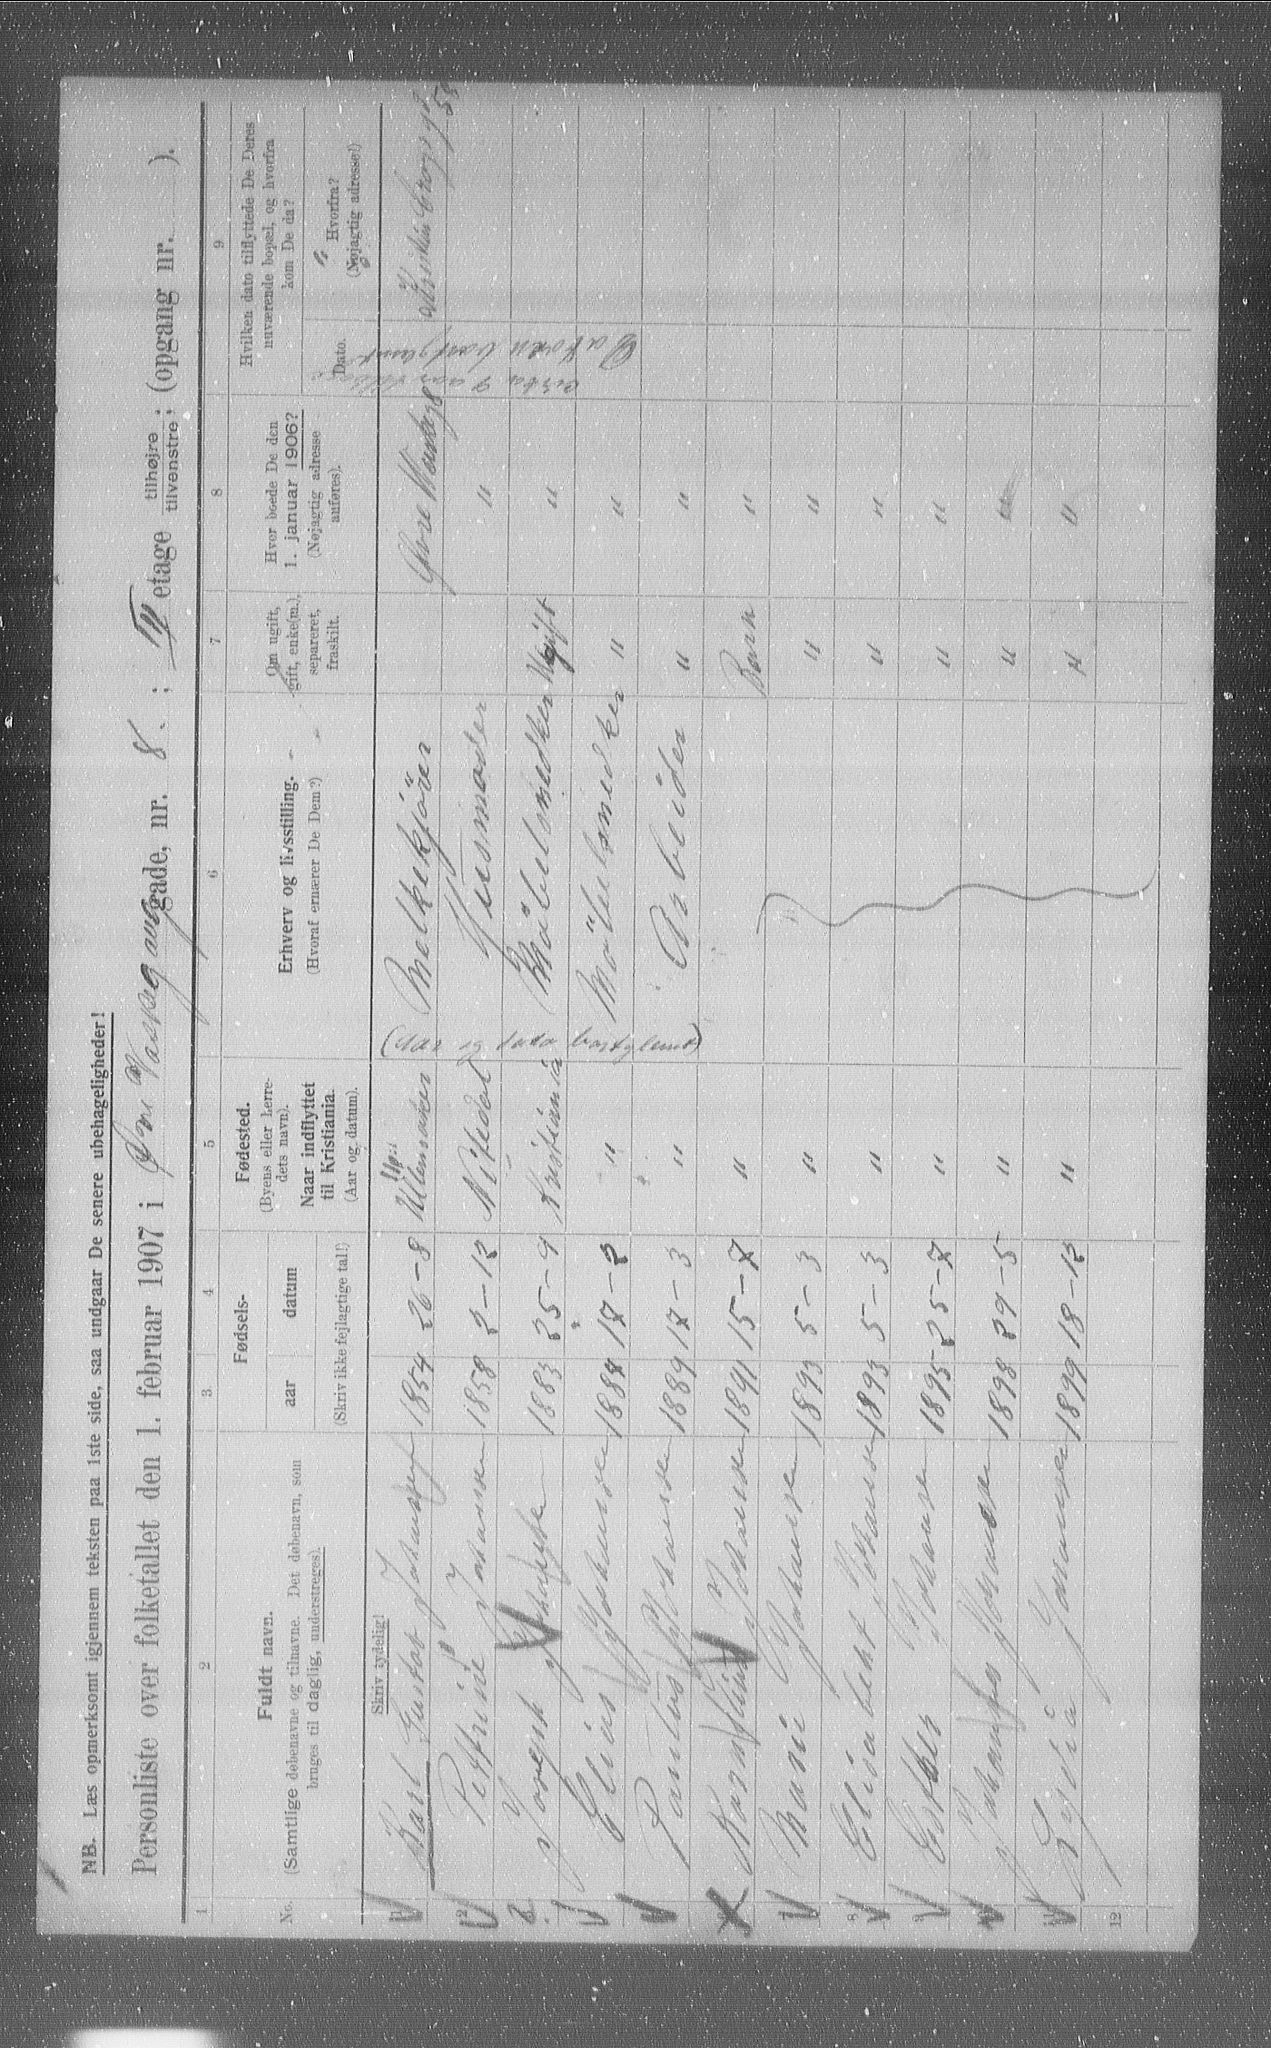 NB. Læs opmerksomt igjennem teksten paa 1ste side, saa undgaar De senere ubehageligheder!
Personliste over folketallet den 1. februar 1907 i Øvre Vaskegang gade, nr. 8. ; IV etage tilhøjre / tilvenstre; (opgang nr. ).
1 2 3 4 5 6 7 8 9
No.
Fuldt navn.
(Samtlige døbenavne og tilnavne. Det døbenavn, som
bruges til daglig, understreges).
Skriv tydelig!
Fødsels-
aar datum
(Skriv ikke fejlagtige tal!)
Fødested.
(Byens eller herre-
dets navn).
Naar indflyttet
til Kristiania.
(Aar og datum).
Erhverv og livsstilling.
(Hvoraf ernærer De Dem?)
Om ugift,
gift, enke(m.),
separeret,
fraskilt.
Hvor boede De den
1. januar 1906?
(Nøjagtig adresse
anføres).
Hvilken dato tilflyttede De Deres
nuværende bopæl, og hvorfra
kom De da?
Dato.
Hvorfra?
(Nøjagtig adresse!)
1 Karl Gustav Johansen 1854 26-8 Ullensaker Melkekjører Øvre
2 Petrine Johansen 1858 2-12 Nitedal Husmoder "
3 Johansen 1883 25-9 Kristiania Möbelsnedker Ugift "
Elias Johansen 1888 17-2 " Möbelsnedker " "
Paulus Johansen 1889 17-3 " Arbeider " "
Karn Johansen 1891 15-7 " Barn "
7 Marie Johansen 1893 5-3 " " "
8 Elisabeht Johansen 1893 5-3 " " "
9 Esther Johansen 1895 25-7 " " "
10 Johannes Johansen 1898 29-5 " " "
11 Lydia Johansen 1899 18-12 " " "
12
(Aar og dato bortglemt)
cirka 7 aar tilbage
Datoen bortglemt